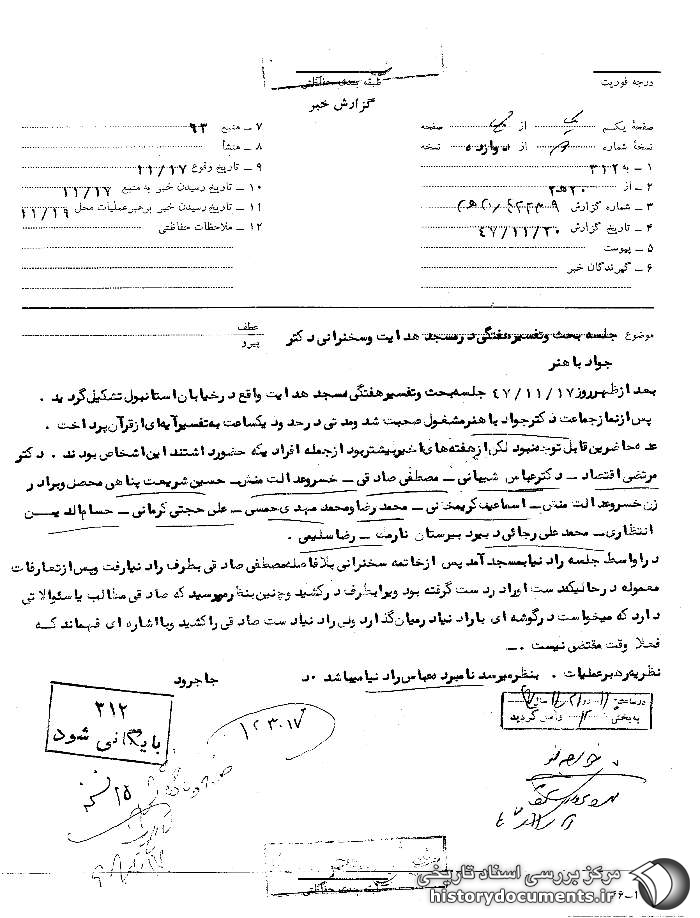 درجه فوریت
طبقه بندی حفاظتی
گزارش خبر
صفحهٔ یکم از صفحه
نسخهٔ شماره از دوازده نسخه
۱ ـ به ۳۱۲
۲ ـ از ۲۰ هـ ۲
۳ ـ شماره گزارش
۴ ـ تاریخ گزارش ۴۷/۱۱/۲۰
۵ ـ پیوست
۶ ـ گیرندگان خبر
۷ ـ منبع ۹۳
۸ ـ منشأ
۹ ـ تاریخ وقوع ۱۱/۱۷
۱۰ ـ تاریخ رسیدن خبر به منبع ۱۱/۱۷
۱۱ ـ تاریخ رسیدن خبر برهبر عملیات محل ۱۱/۱۹
۱۲ ـ ملاحظات حفاظتی
موضوع جلسه بحث وتفسیرهفتگی درمسجد هدایت وسخنرانی دکتر
جواد باهنر
عطف
پیرو
بعد ازظهرروز ۴۷/۱۱/۱۷ جلسه بحث وتفسیرهفتگی مسجد هدایت واقع درخیابان استانبول تشکیل گردید .
پس ازنماز جماعت دکترجواد باهنرمشغول صحبت شد ومدتی درحدود یکساعت به تفسیرآیه ای ازقرآن پرداخت .
عده حاضرین قابل توجه نبود لکن ازهفته های اخیربیشتربود ازجمله افراد یکه حضورد اشتند این اشخاص بودند . دکتر
مرتضی اقتصاد ـ دکترعباس شیبانی ـ مصطفی صادقی ـ خسروعدالت منش ـ حسین شریعت پناهی محصل وبرادر
زن خسروعدالت منش ـ اسماعیل کریمخانی ـ محمد رضا ومحمد مهدی حمسی ـ علی حجتی کرمانی ـ حسام الدین
انتظاری ـ محمد علی رجائی دبیردبیرستان نارمک ـ رضا سلیمی .
دراواسط جلسه راد نیابمسجد آمد پس ازخاتمه سخنرانی بلافاصله مصطفی صادقی بطرف راد نیارفت وپس ازتعارفات
معموله درحالیکه دست اوراد ردست گرفته بود ویرابطرف درکشید وچنین بنظرمیرسید که صادقی مطالب یا سئوالاتی
دارد که میخواست درگوشه ای باراد نیاد رمیان گذارد ولی راد نیاد ست صادقی راکشید وبااشاره ای فهماند که
فعلا وقت مقتضی نیست .ـ
نظریه رهبرعملیات . بنظرمیرسد نامبرده عباس راد نیامیباشد .د جاجرود
۳۱۲
بایگانی شود
۱۲۳۰۱۷
۲۵ نسخه
طبقه بندی حفاظتی
مرکز بررسی اسناد تاریخی
historydocuments.ir